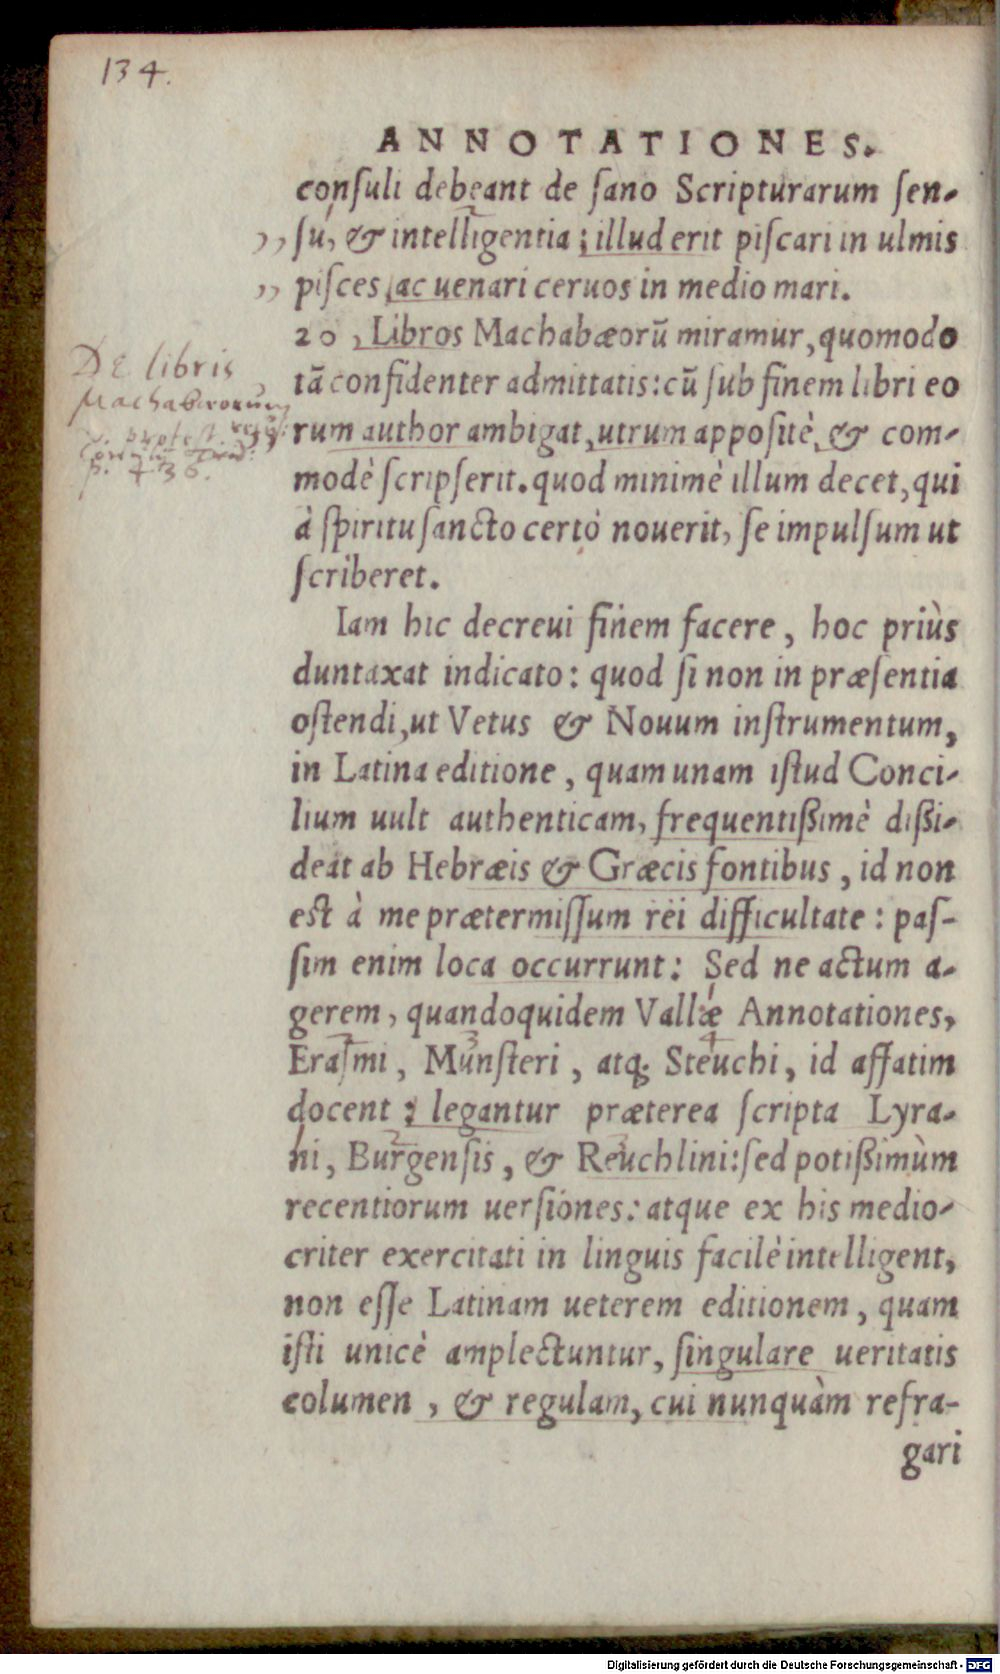 134.
ANNOTATIONES.
conſuli debeant de ſano Scripturarum ſen-
,, ſu, & intelligentia; illud erit piſcari in ulmis
,, piſces, ac uenari ceruos in medio mari.
20, Libros Machabæorū miramur, quomodo
tā confidenter admittatis: cū ſub finem libri eo
rum author ambigat, utrum appoſitè, & com-
modè ſcripſerit. quod minimè illum decet, qui
à ſpiritu ſancto certò nouerit, ſe impulſum ut
ſcriberet.
De libris
Machabæorum
p. 436.
Iam hic decreui finem facere, hoc priùs
duntaxat indicato: quod ſi non in præſentia
oſtendi, ut Vetus & Nouum inſtrumentum,
in Latina editione, quam unam iſtud Conci-
lium uult authenticam, frequentißimè dißi-
deāt ab Hebræis & Græcis fontibus, id non
eſt à me prætermiſſum rei difficultate: paſ-
ſim enim loca occurrunt: Sed ne actum a-
gerem, quandoquidem Vallæ Annotationes,
Eraſmi, Munſteri, atq; Steuchi, id affatim
docent: legantur præterea ſcripta Lyra-
ni, Burgenſis, & Reuchlini: ſed potißimùm
recentiorum uerſiones: atque ex his medio-
criter exercitati in linguis facilè intelligent,
non eſſe Latinam ueterem editionem, quam
iſti unicè amplectuntur, ſingulare ueritatis
columen, & regulam, cui nunquàm refra-
gari
Digitalisierung gefördert durch die Deutsche Forschungsgemeinschaft - DFG